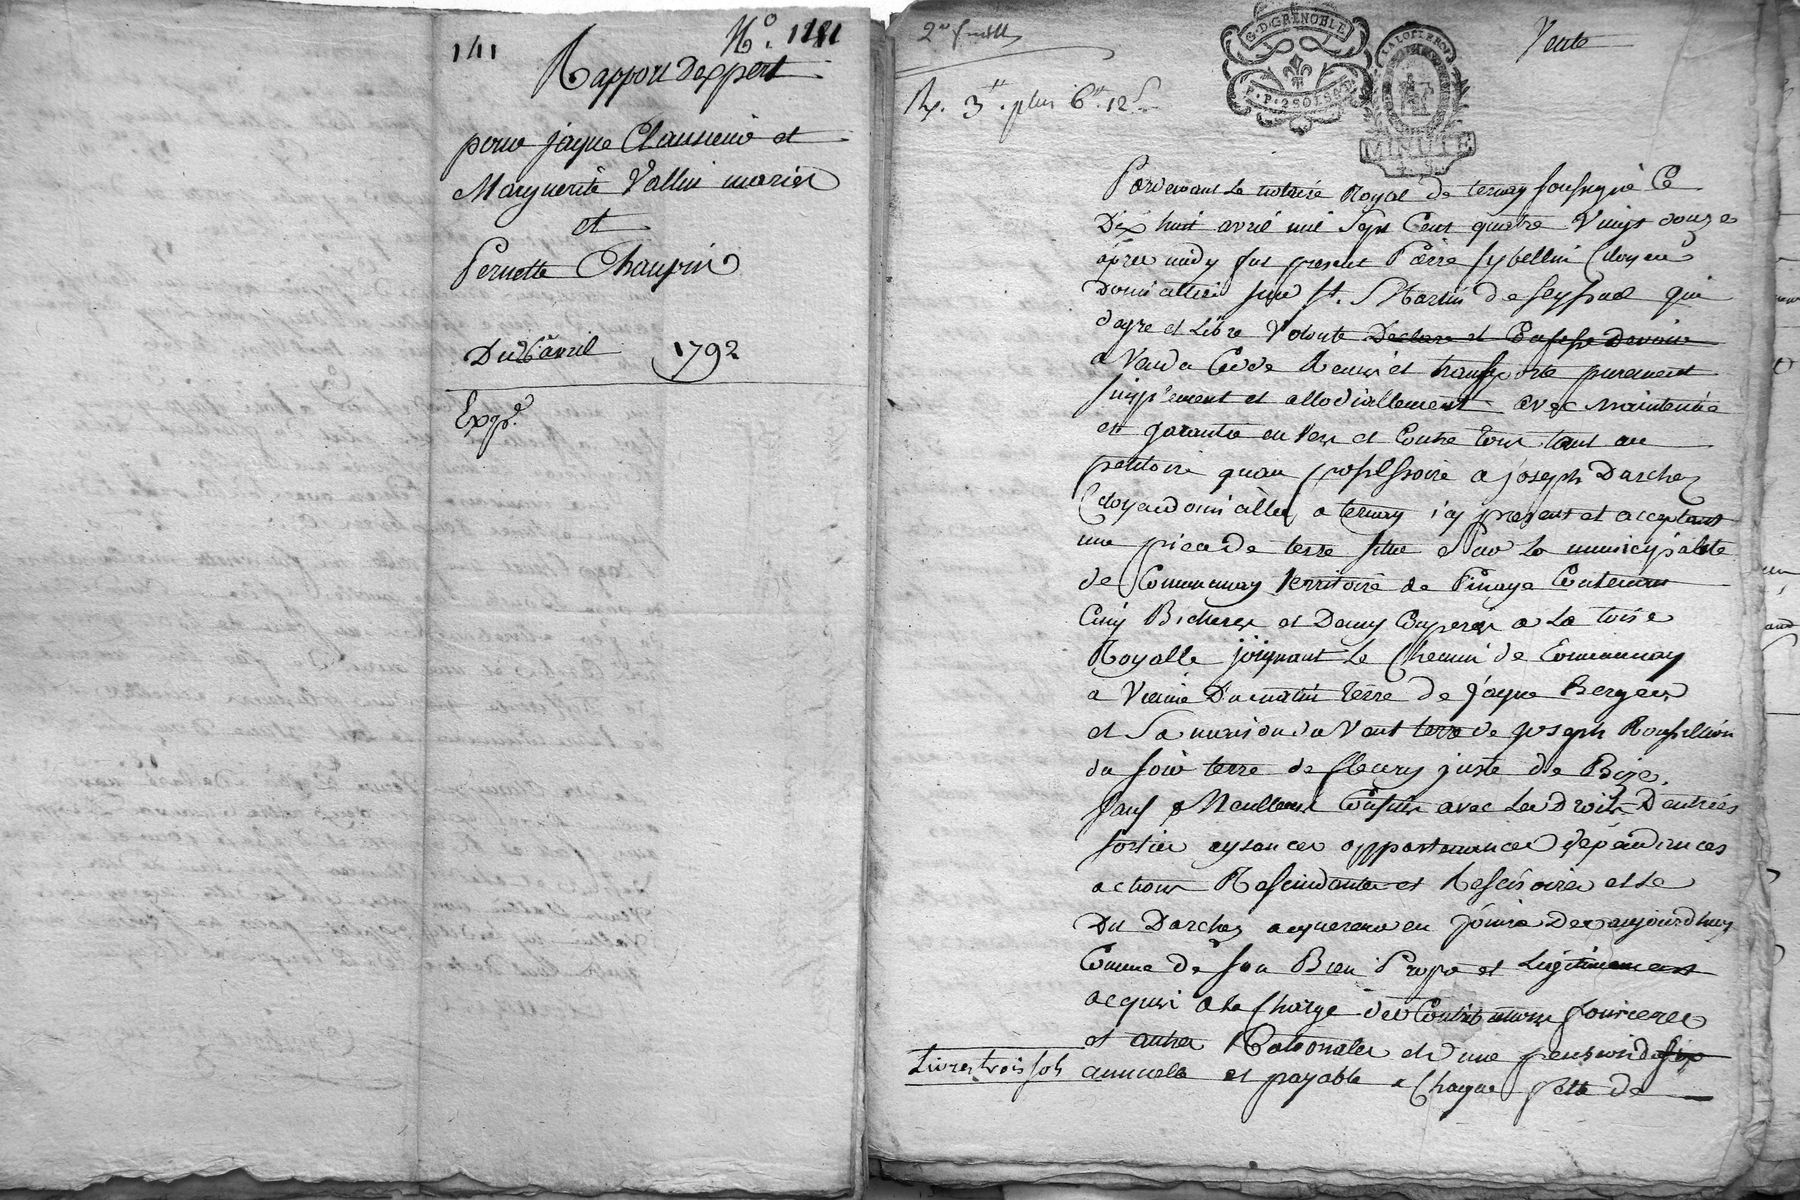 141
N.º 1181
Rapport dexpert
pour jaque Clausieur et
Marguerite Vallin mariés
et
Pernette Chaurin
Du 6 avril 1792
Exp.é
2e feuille
Vente
G.D. GRENOBLE
P.P. 2 SOLS
LA LOI LE ROI
MINUTE
R. 3tt. plus 6tt. 12s
Pardevant Le notaire Royal de ternay soussigné Ce
Dix huit avril mil Sept Cent quatre Vingt douze
apres midy fut present Pierre sybellin Citoyen
Domicillié sur St. Martin de seyssuel qui
de gre et Libre Volonte Declare et Confesse Devoir
a Vendu Cédé Remis et transporté purement
simplement et allodiallement avec Maintenüe
et garantie envers et Contre tous tant au
petitoire quau possessoire a joseph Darchez
Citoyen domicillié a ternay icy present et acceptant
une piece de terre situé Sur la municipalité
de Communay territoire de Pinaye Contenant
Cinq Bicherées et Demy Couperée a La toise
Royalle joignant Le Chemin de Communay
a Vienne Du matin terre de jaque Berger
et Sa maison du Vent terre de joseph Roussillion
du soir terre de fleury juste de Bize,
sauf Meilleurs Confins avec Les Droits D'entrées
sorties aysances appartenances dépendances
actions Rescindantes et Rescisoires et Le
Dit Darchez acquereur en jouira Des aujourdhuy
Comme de son Bien Propre et Legitimement
acquis a la Charge des Contributions foncieres
et autres Nationales et d'une pension de six
Livres trois sols
annuele et payable a Chaque fete de